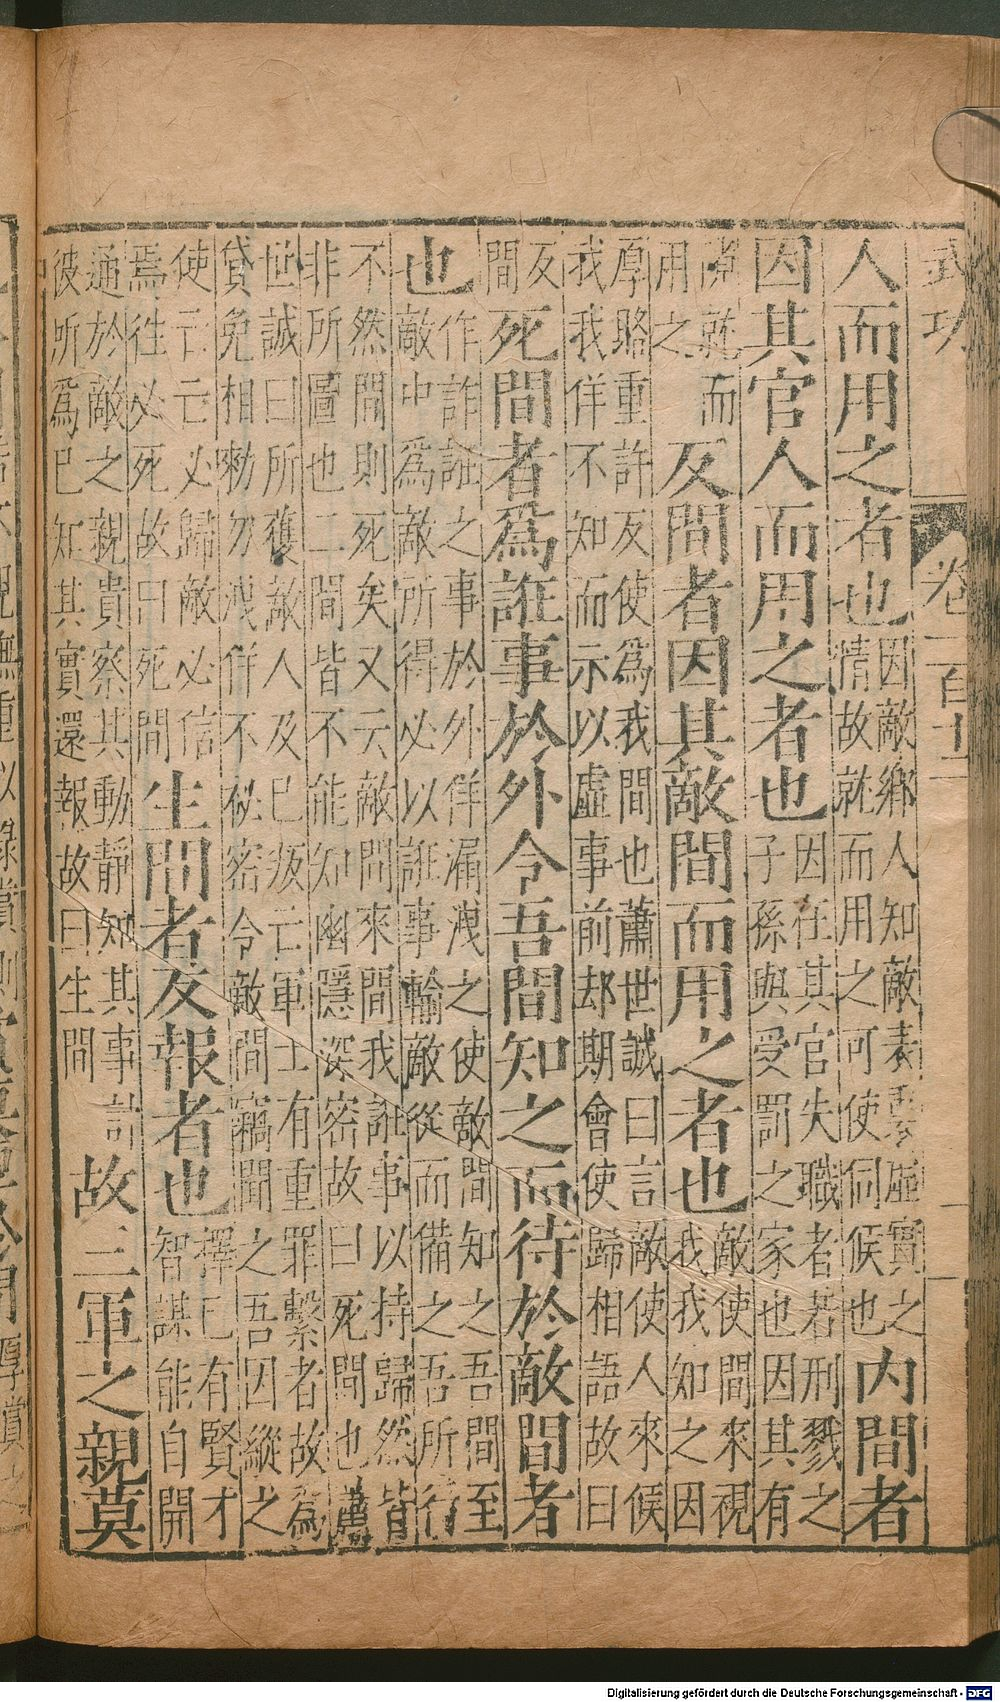 武功　卷一百十
人而用之者也 因敵鄉人知敵素裏虛實之
情故就而用之可使伺候也 內間者
因其官人而用之者也 因在其官失職者若刑戮之
子孫與受罰之家也因其有
隙就而
用之 反間者因其敵間而用之者也 敵使間來視
我我知之因
厚賂重許反使爲我間也蕭世誠曰言敵使人來候
我我佯不知而示以虛事前却期會使歸相語故曰
反
間 死間者爲誑事於外令吾間知之而待於敵間者
也 作詐誑之事於外佯漏洩之使敵間知之吾間至
敵中爲敵所得必以誑事輸敵從而備之吾所行
不然間則死矣又云敵間來間我誑事以持歸然皆
非所圖也二間皆不能知幽隱深密故曰死間也蕭
世誠曰所獲敵人及已叛亡軍士有重罪繫者故爲
貸免相勑勿洩佯不秘密令敵間竊聞之吾因縱之
使亡亡必歸敵必信
焉往必死故曰死間 生間者反報者也 擇已有賢才
智謀能自開
通於敵之親貴察其動靜知其事計
彼所爲已知其實還報故曰生間 故三軍之親莫
Digitalisierung gefördert durch die Deutsche Forschungsgemeinschaft - DFG